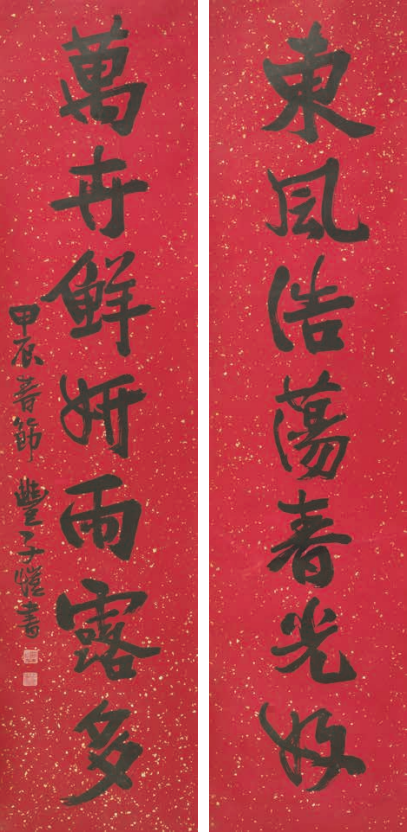 東風浩蕩春光好
萬卉鮮妍雨露多
甲辰春節 豐子愷書